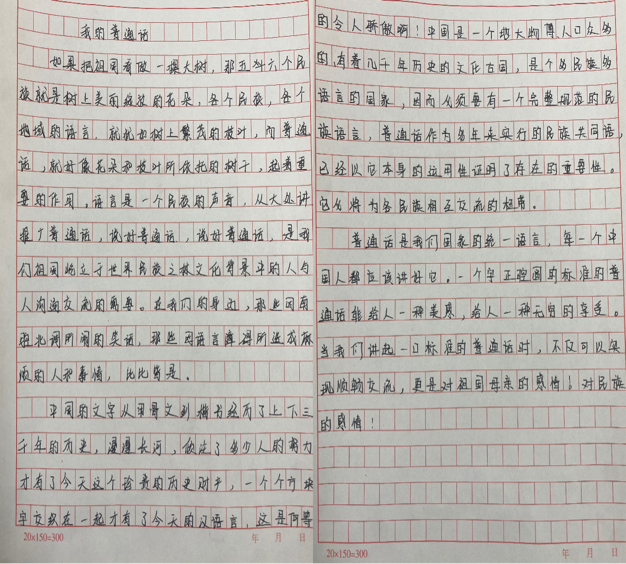 我的普通话
如果把祖国看做一棵大树，那五十六个民
族就是树上美丽绽放的花朵，各个民族，各个
地域的语言，就犹如树上繁茂的枝叶，而普通
话，就好像花朵和枝叶所依托的树干，起着重
要的作用。语言是一个民族的声音，从大处讲
推广普通话，说好普通话，说好普通话，是我
们祖国屹立于世界民族之林文化背景中的人与
人沟通交流的需要。在我们的身边，那些因南
腔北调所闹的笑话，那些因语言障碍所造成麻
烦的人和事情，比比皆是。
中国的文字从甲骨文到楷书经历了上下三
千年的历史，漫漫长河，倾注了多少人的努力
才有了今天这个珍贵的历史财产，一个个方块
字交织在一起才有了今天的汉语言，这是何等
20×150=300
年 月 日
的令人骄傲啊！中国是一个地大物博人口众多
的，有着几千年历史的文化古国，是个多民族多
语言的国家，因而必须要有一个完整规范的民
族语言，普通话作为多年来实行的民族共同语，
已经以它本身的运用性证明了存在的重要性。
它必将为各民族相互交流的纽带。
普通话是我们国家的统一语言，每一个中
国人都应该讲好它。一个字正腔圆的标准的普
通话能给人一种美感，给人一种无穷的享受。
当我们讲起一口标准的普通话时，不仅可以实
现顺畅交流，更是对祖国母亲的感情！对民族
的感情！
20×150=300
年 月 日